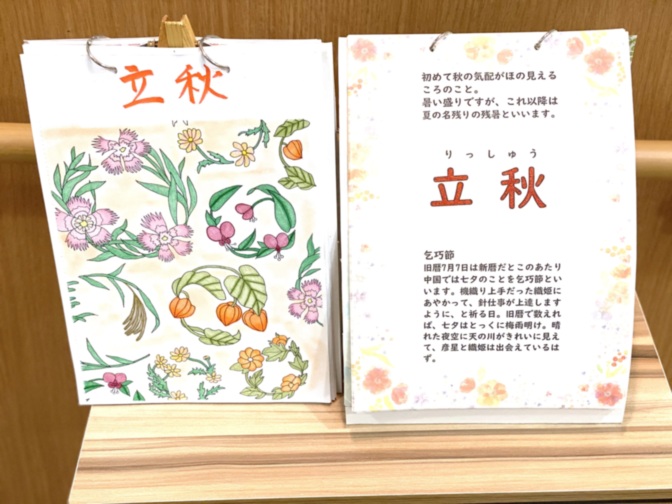 立秋
初めて秋の気配がほの見える
ころのこと。
暑い盛りですが、これ以降は
夏の名残りの残暑といいます。
りっしゅう
立秋
乞巧節
旧暦7月7日は新暦だとこのあたり
中国では七夕のことを乞巧節とい
います。機織り上手だった織姫に
あやかって、針仕事が上達します
ように、と祈る日。旧暦で数えれ
ば、七夕はとっくに梅雨明け。晴れ
た夜空に天の川がきれいに見え
て、彦星と織姫は出会えているは
ず。